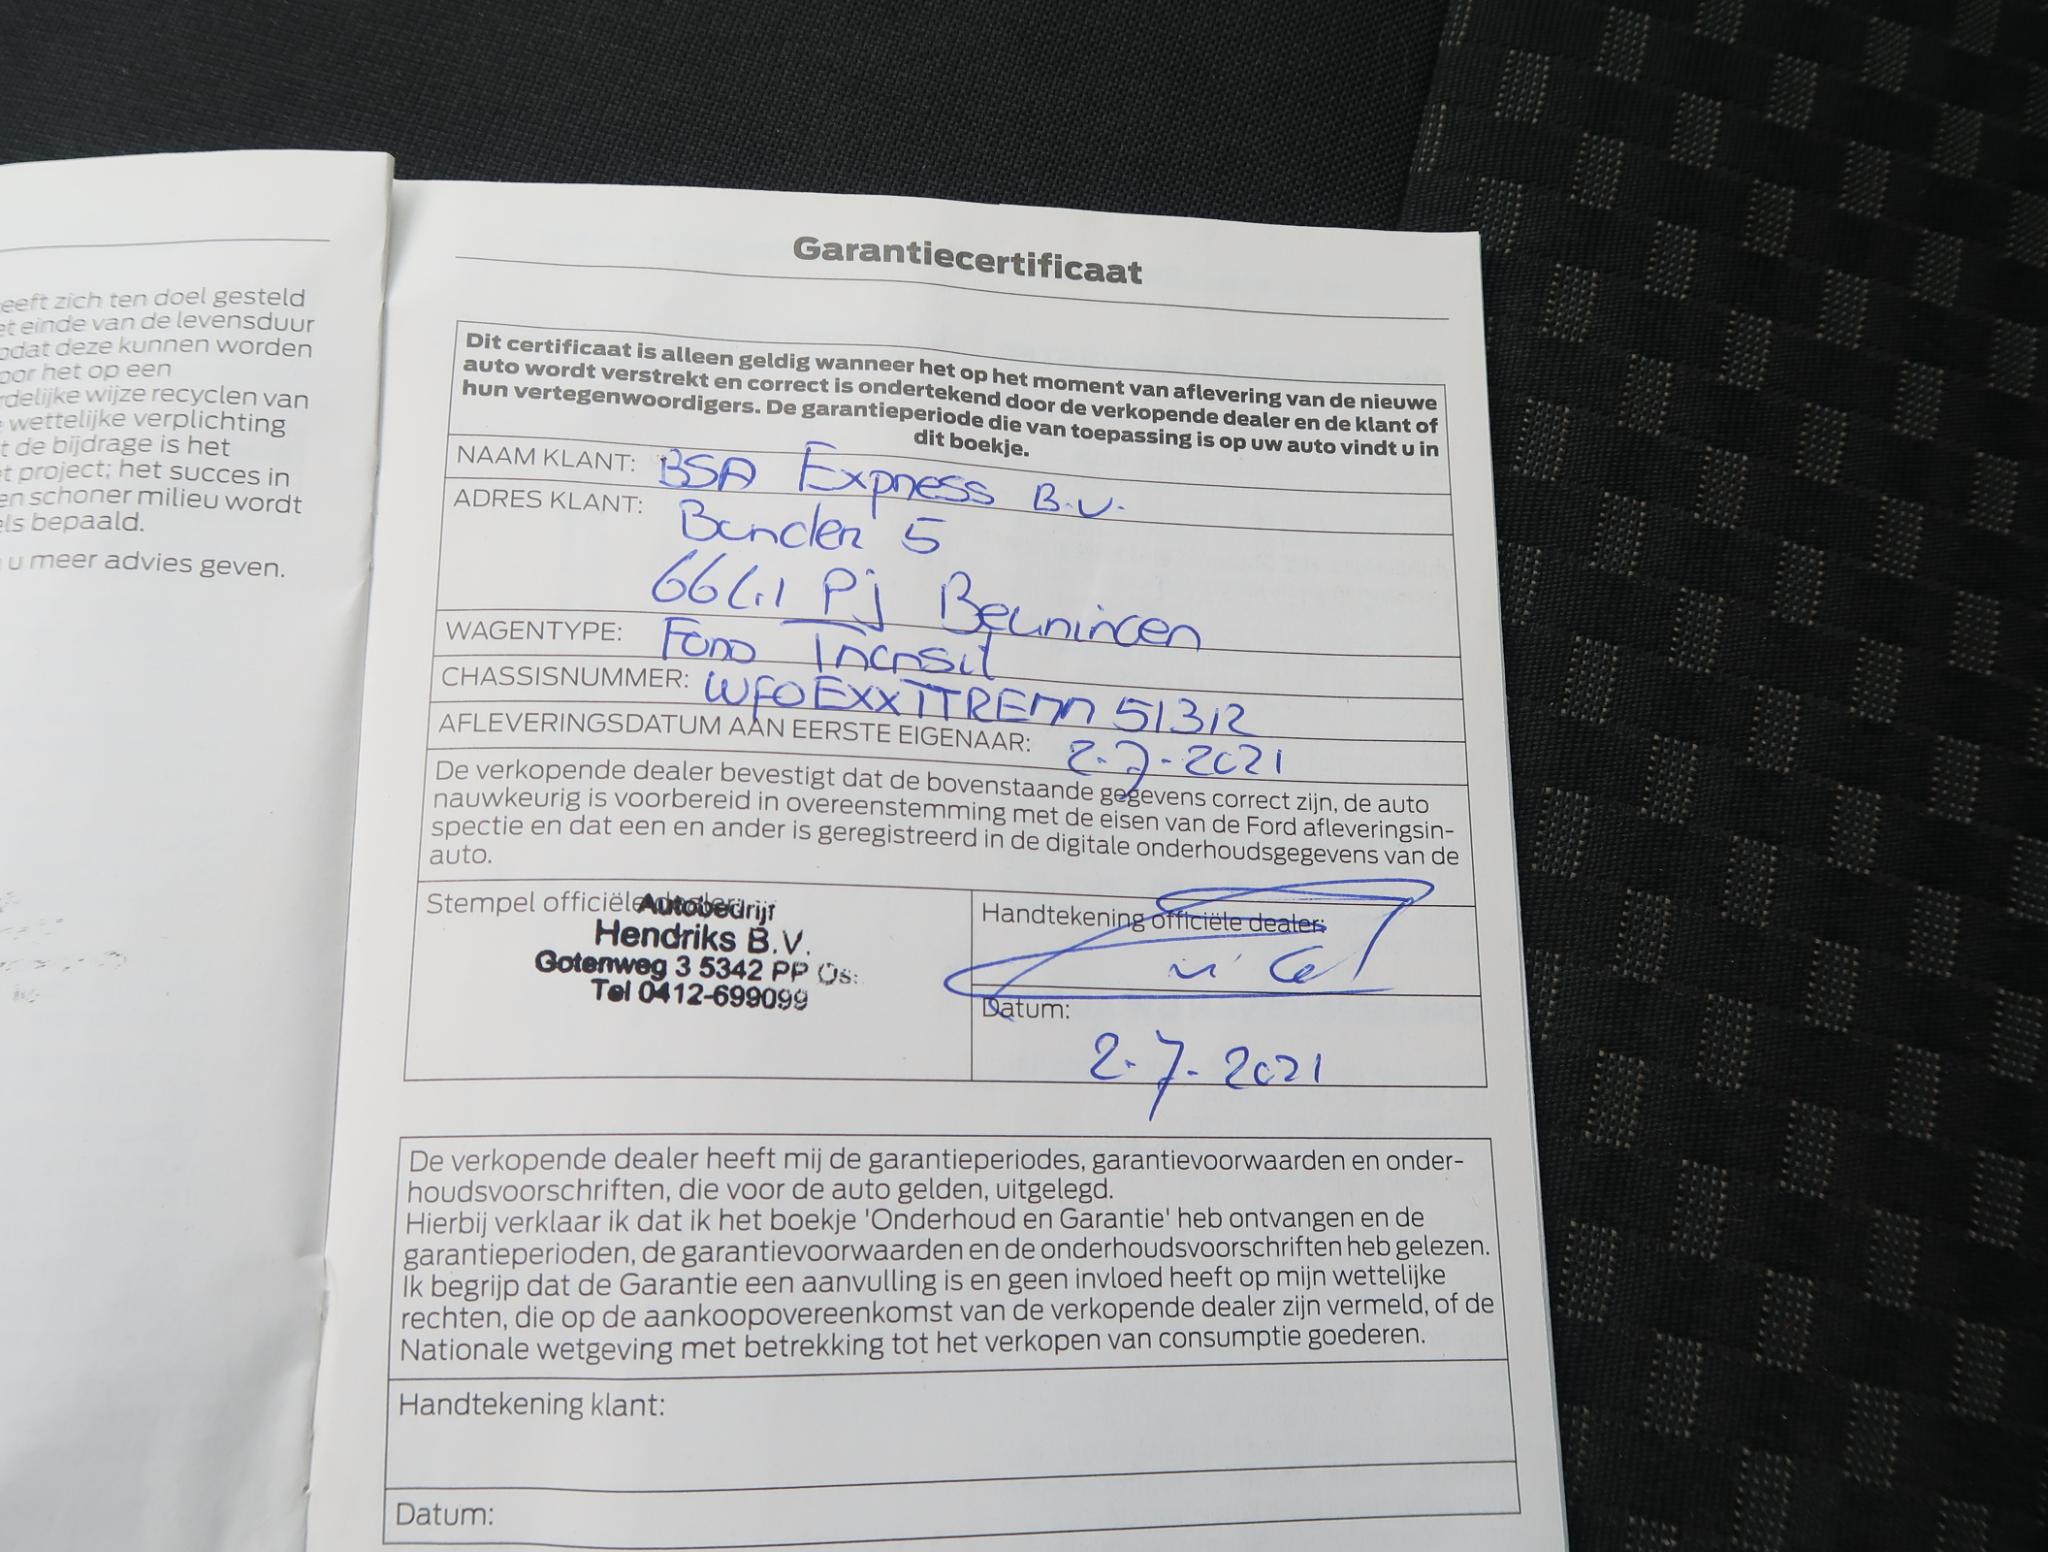 eeft zich ten doel gesteld
et einde van de levensduur
odat deze kunnen worden
oor het op een
rdelijke wijze recyclen van
wettelijke verplichting
t de bijdrage is het
et project; het succes in
en schoner milieu wordt
els bepaald.
u meer advies geven.
Garantiecertificaat
Dit certificaat is alleen geldig wanneer het op het moment van aflevering van de nieuwe
auto wordt verstrekt en correct is ondertekend door de verkopende dealer en de klant of
hun vertegenwoordigers. De garantieperiode die van toepassing is op uw auto vindt u in
dit boekje.
NAAM KLANT: BSA Express B.V.
ADRES KLANT: Bander 5
6641 PJ Beuningen
WAGENTYPE: Ford Transit
CHASSISNUMMER: WFOEXXTTREMM51312
AFLEVERINGSDATUM AAN EERSTE EIGENAAR: 2-7-2021
De verkopende dealer bevestigt dat de bovenstaande gegevens correct zijn, de auto
nauwkeurig is voorbereid in overeenstemming met de eisen van de Ford afleveringsin-
spectie en dat een en ander is geregistreerd in de digitale onderhoudsgegevens van de
auto.
Stempel officiële dealer:
Autobedrijf
Hendriks B.V.
Gotenweg 3 5342 PP Os
Tel 0412-699099
Handtekening officiële dealer:
Datum:
2-7-2021
De verkopende dealer heeft mij de garantieperiodes, garantievoorwaarden en onder-
houdsvoorschriften, die voor de auto gelden, uitgelegd.
Hierbij verklaar ik dat ik het boekje 'Onderhoud en Garantie' heb ontvangen en de
garantieperioden, de garantievoorwaarden en de onderhoudsvoorschriften heb gelezen.
Ik begrijp dat de Garantie een aanvulling is en geen invloed heeft op mijn wettelijke
rechten, die op de aankoopovereenkomst van de verkopende dealer zijn vermeld, of de
Nationale wetgeving met betrekking tot het verkopen van consumptie goederen.
Handtekening klant:
Datum: